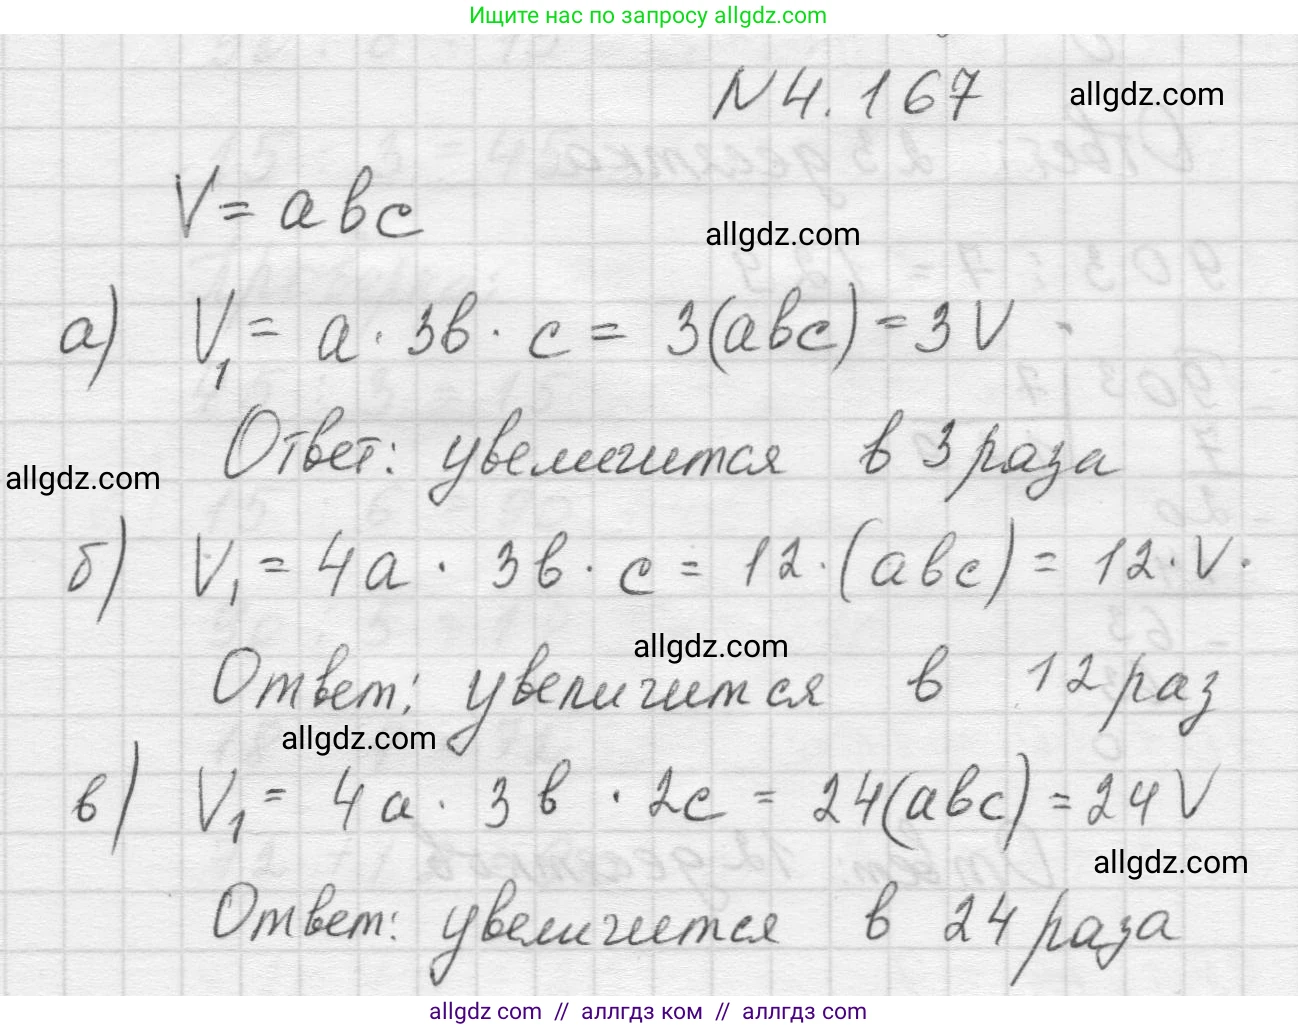 Ищите нас по запросу allgdz.com
N 4.167
allgdz.com
V = авс
allgdz.com
а) V₁ = а · 3в · с = 3(авс) = 3V
Ответ: увеличится в 3 раза
allgdz.com
б) V₁ = 4а · 3в · с = 12 · (авс) = 12 · V.
allgdz.com
Ответ: увеличится в 12 раз
allgdz.com
в) V₁ = 4а · 3в · 2с = 24(авс) = 24V
allgdz.com
Ответ: увеличится в 24 раза
allgdz.com // аллгдз ком // аллгдз com